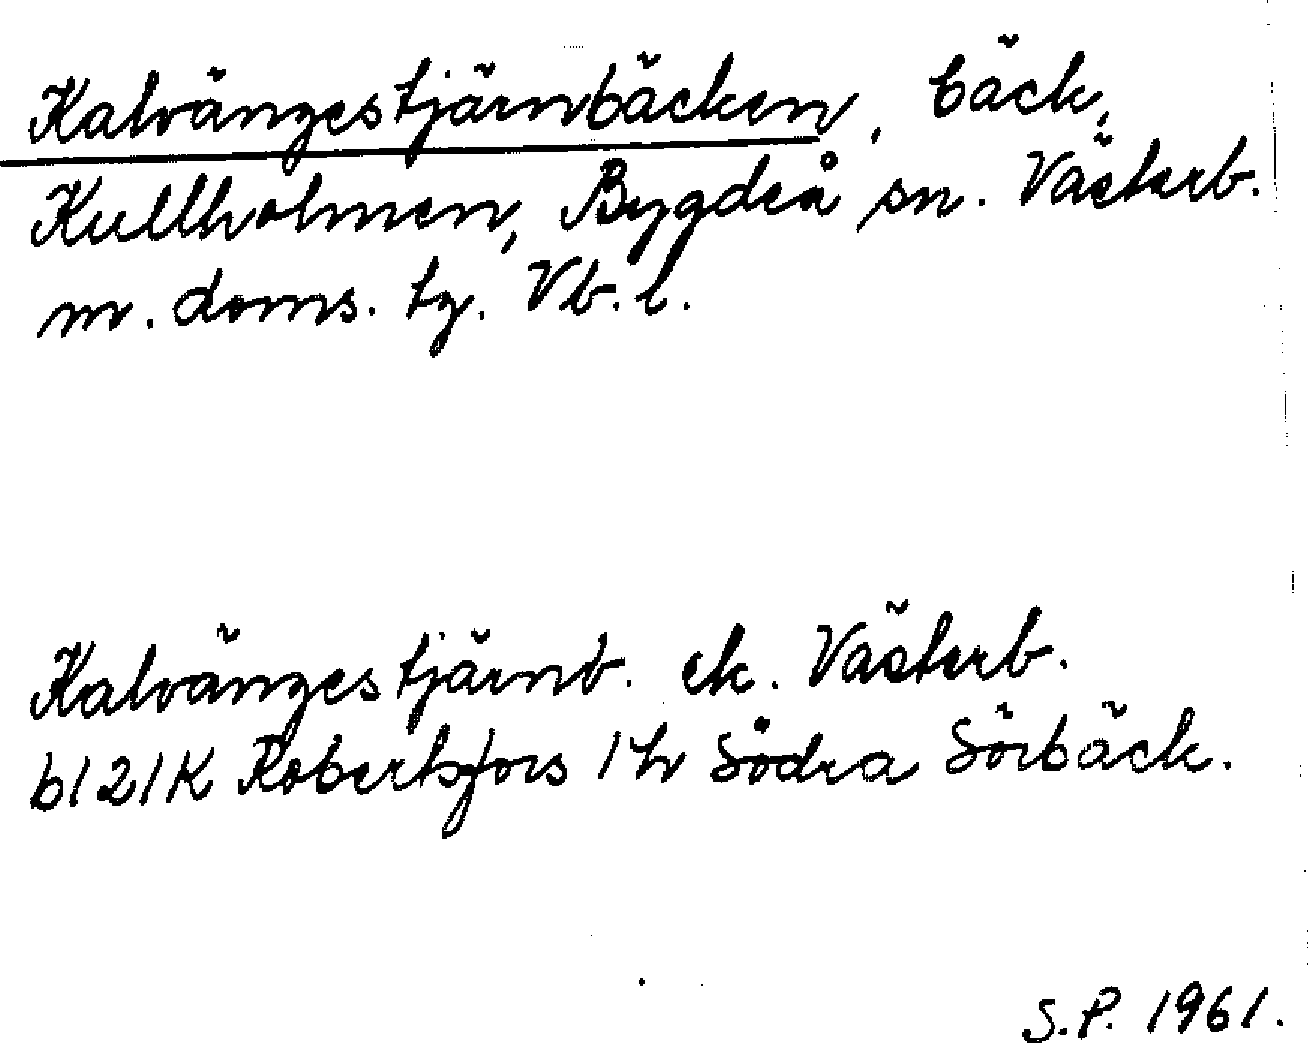 Kalvängestjärnbäcken, bäck,
Kullholmen, Bygdeå sn. Västerb.
m. doms. tg. Vb. l.
Kalvängestjärnb. ek. Västerb.
bl 21K Robertsfors 1 h Södra Sörbäck.
S.P. 1961.